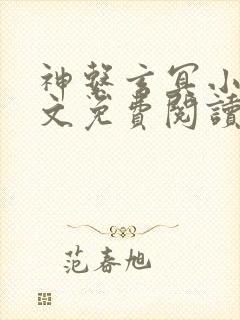 神醫玄冥小
文免費閱讀
范春旭